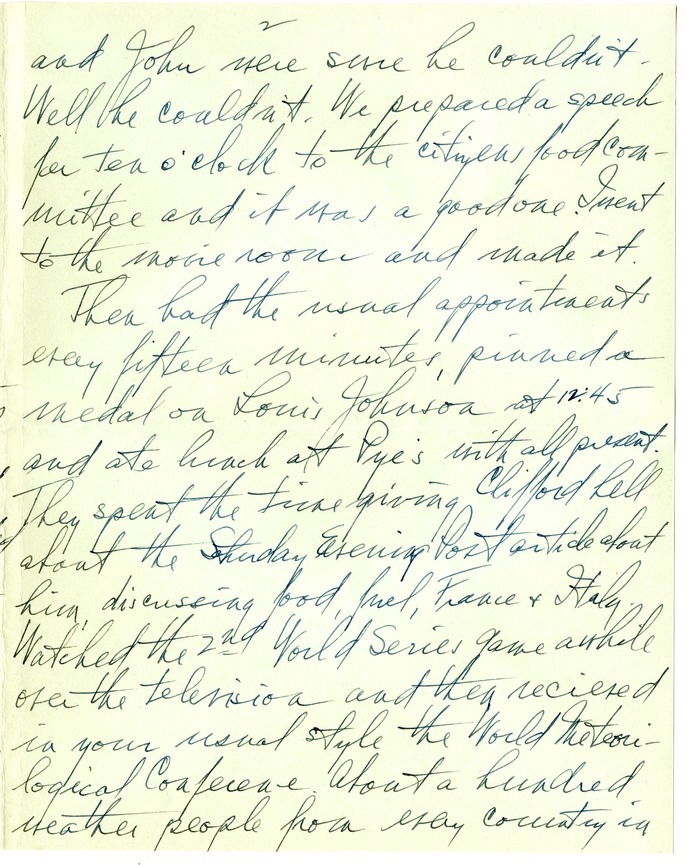 2
and John were sure he couldn't.
Well he couldn't. We prepared a speech
for ten o'clock to the citizens food com-
mittee and it was a good one. I went
to the movie room and made it.
Then had the usual appointments
every fifteen minutes, pinned a
medal on Louis Johnson at 12:45
and ate lunch at Pye's with all present.
They spent the time giving Clifford hell
about the Saturday Evening Post article about
him, discussing food, fuel, France & Italy.
Watched the 2nd World Series game awhile
over the television and then recieved
in your usual style the World Meteori-
logical Conference. About a hundred
weather people from every country in